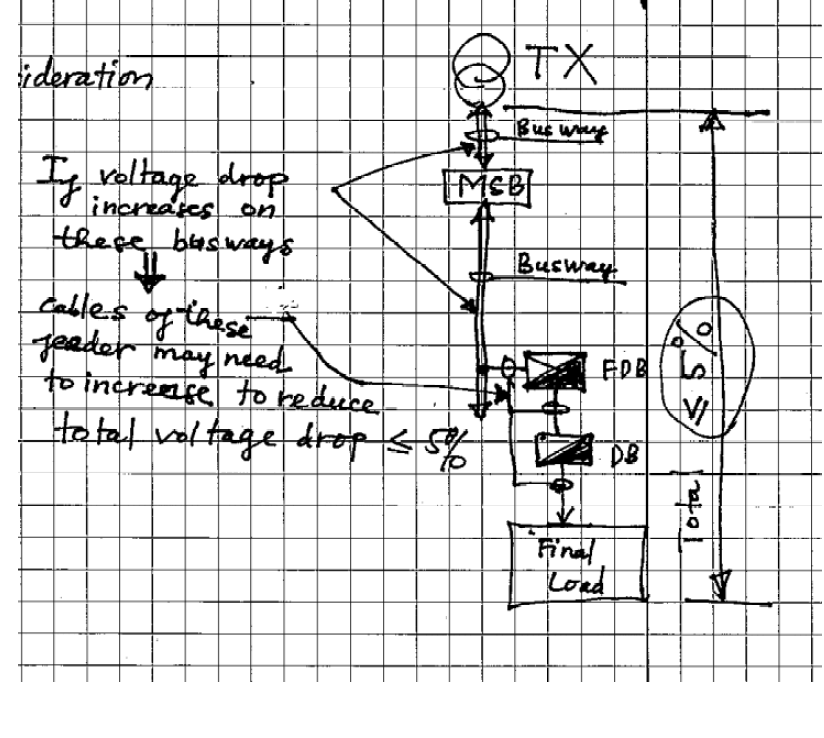 ideration
TX
Busway
If voltage drop
increases on
these busways
MSB
Busway
cables of these
feeder may need
to increase to reduce
total voltage drop ≤ 5%
FDB
DB
Final
Load
Total ≤ 5%